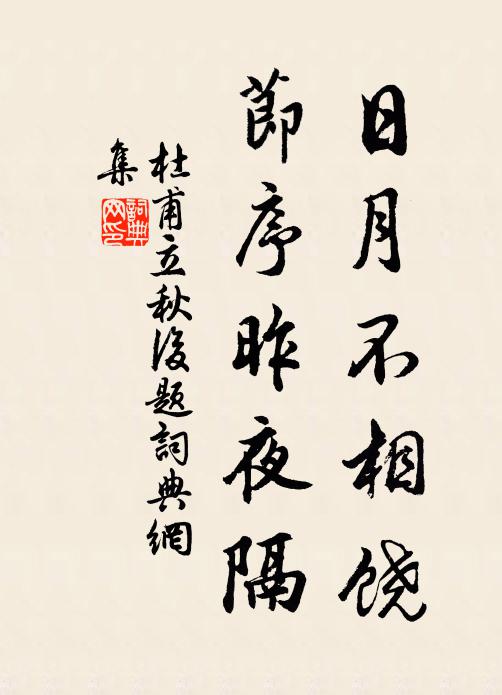 日月不相饶
節序昨夜隔
杜甫立秋後題詞典網
集
詞典
网印